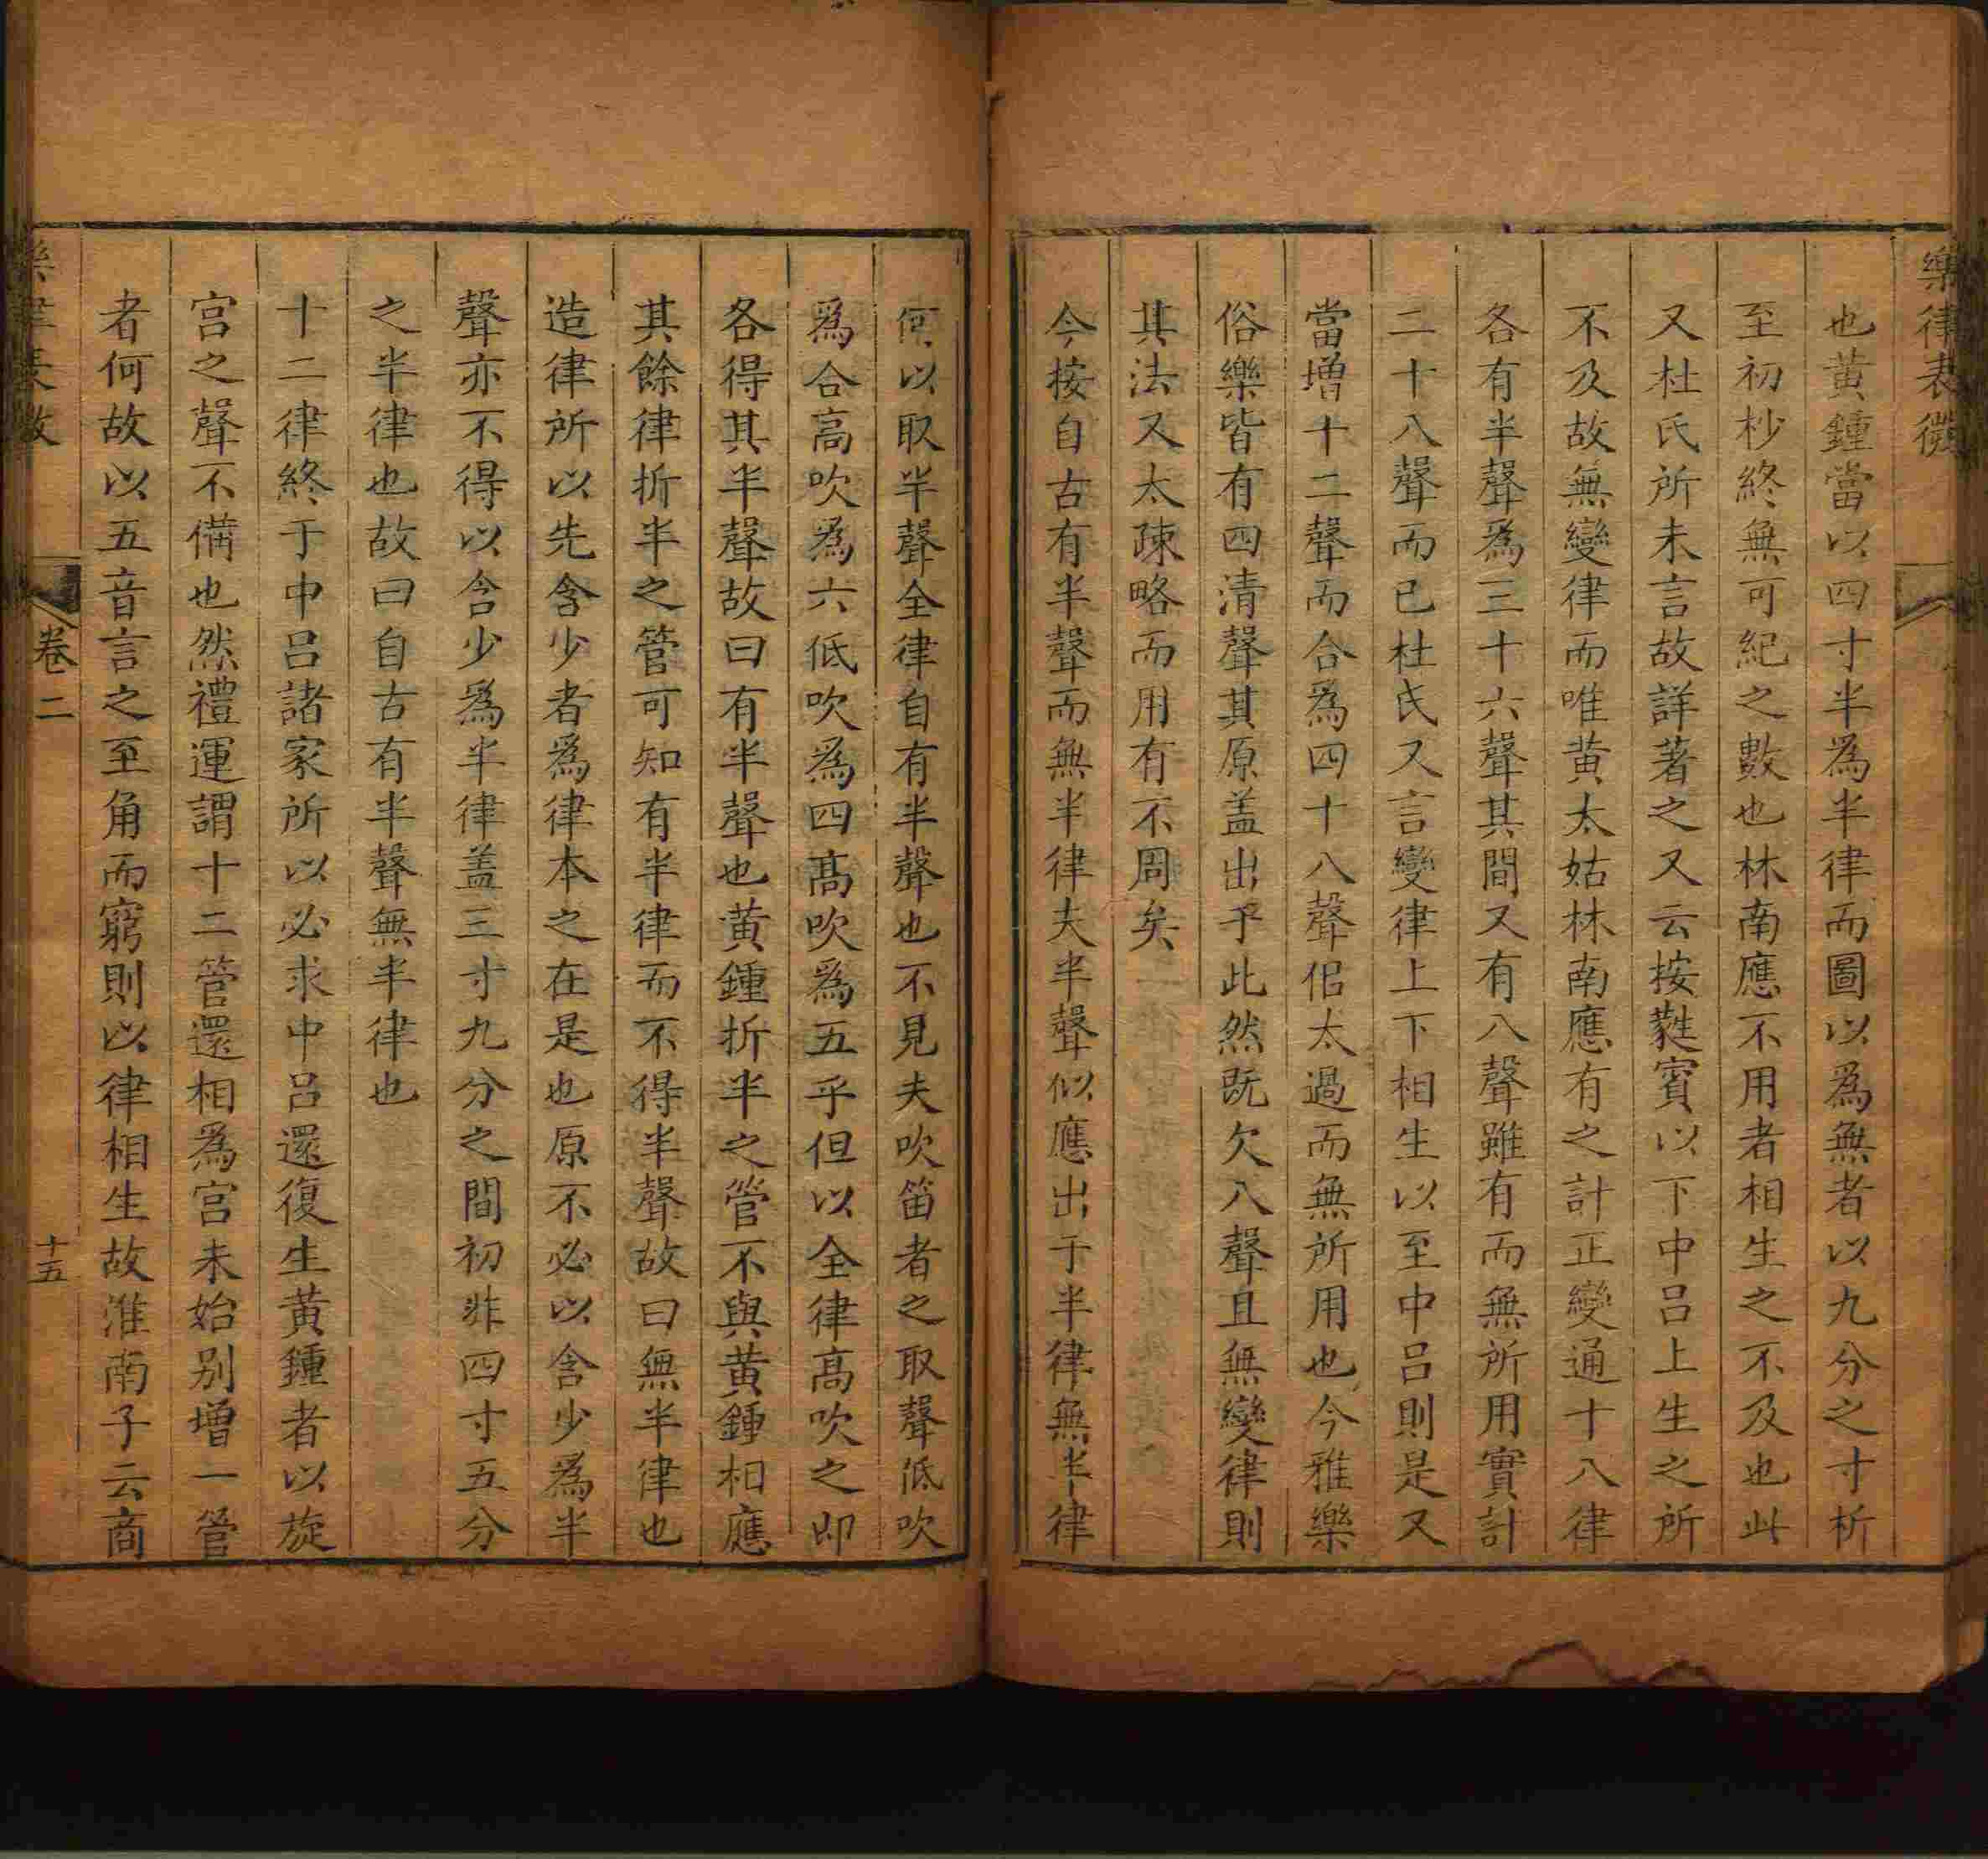 樂律表微
也黃鍾當以四寸半爲半律而圖以爲無者以九分之寸析
至初杪終無可紀之數也林南應不用者相生之不及也此
又杜氏所未言故詳著之又云按蕤賓以下中呂上生之所
不及故無變律而唯黃太姑林南應有之計正變通十八律
各有半聲爲三十六聲其間又有八聲雖有而無所用實計
二十八聲而已杜氏又言變律上下相生以至中呂則是又
當增十二聲而合爲四十八聲侣太過而無所用也今雅樂
俗樂皆有四清聲其原盖出乎此然既欠八聲且無變律則
其法又太疎略而用有不周矣
今按自古有半聲而無半律夫半聲似應出于半律無半律
何以取半聲全律自有半聲也不見夫吹笛者之取聲低吹
爲合高吹爲六低吹爲四高吹爲五乎但以全律高吹之即
各得其半聲故曰有半聲也黃鍾折半之管不與黃鍾相應
其餘律折半之管可知有半律而不得半聲故曰無半律也
造律所以先含少者爲律本之在是也原不必以含少爲半
聲亦不得以含少爲半律盖三寸九分之間初非四寸五分
之半律也故曰自古有半聲無半律也
十二律終于中呂諸家所以必求中呂還復生黃鍾者以旋
宮之聲不備也然禮運謂十二管還相爲宮未始别增一管
者何故以五音言之至角而窮則以律相生故淮南子云商
卷二
十五